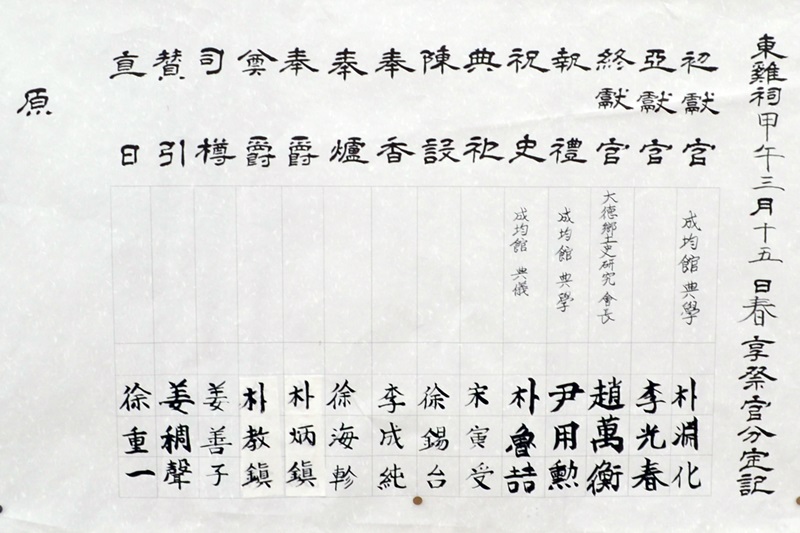 東雞祠甲午三月十五日春享祭官分定記
初獻官 成均館 典學 朴淵化
亞獻官 李光春
終獻官 大德鄕土史研究會長 趙萬衡
執禮 成均館 典學 尹用勳
祝史 成均館 典儀 朴魯喆
典祀 宋寅受
陳設 徐錫台
奉香 李成純
奉爐 徐海軫
奉爵 朴炳鎭
奠爵 朴教鎭
司樽 姜善子
贊引 姜稠聲
直日 徐重一
原